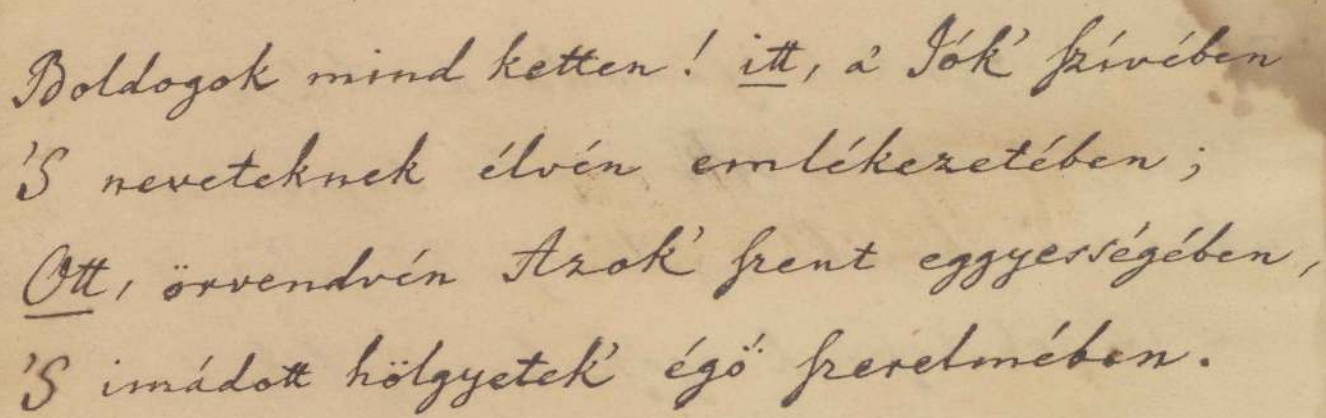 Boldogok mind ketten! itt, a' Jók' szívében
'S neveteknek élvén emlékezetében;
Ott, örvendvén Azok' szent eggyességében,
'S imádott hölgyetek' égő szerelmében.